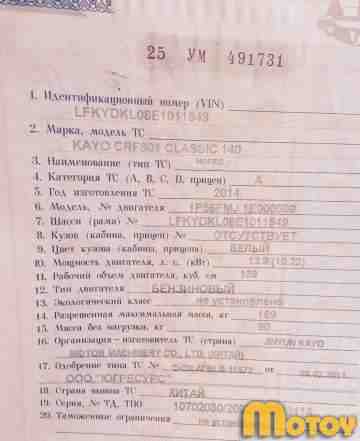 25 УМ 491731
1. Идентификационный номер (VIN)
LFKYDKL08E1011849
2. Марка, модель ТС
KAYO CRF801 CLASSIC 140
3. Наименование (тип ТС)
4. Категория ТС (А, В, С, D, прицеп) А
5. Год изготовления ТС 2014
6. Модель, № двигателя
7. Шасси (рама) № LFKYDKL08E1011849
8. Кузов (кабина, прицеп) № ОТСУТСТВУЕТ
9. Цвет кузова (кабины, прицепа) БЕЛЫЙ
10. Мощность двигателя, л. с. (кВт)
11. Рабочий объем двигателя, куб. см 139
12. Тип двигателя БЕНЗИНОВЫЙ
13. Экологический класс не установлено
14. Разрешенная максимальная масса, кг 169
15. Масса без нагрузки, кг 90
16. Организация – изготовитель ТС (страна) KAYO
MOTOR MACHINERY CO., LTD. (КИТАЙ)
17. Одобрение типа ТС №
ООО "ЮГРЕСУРС"
18. Страна вывоза ТС КИТАЙ
19. Серия, № ТД, ТПО
20. Таможенные ограничения не установлены
Мотоу